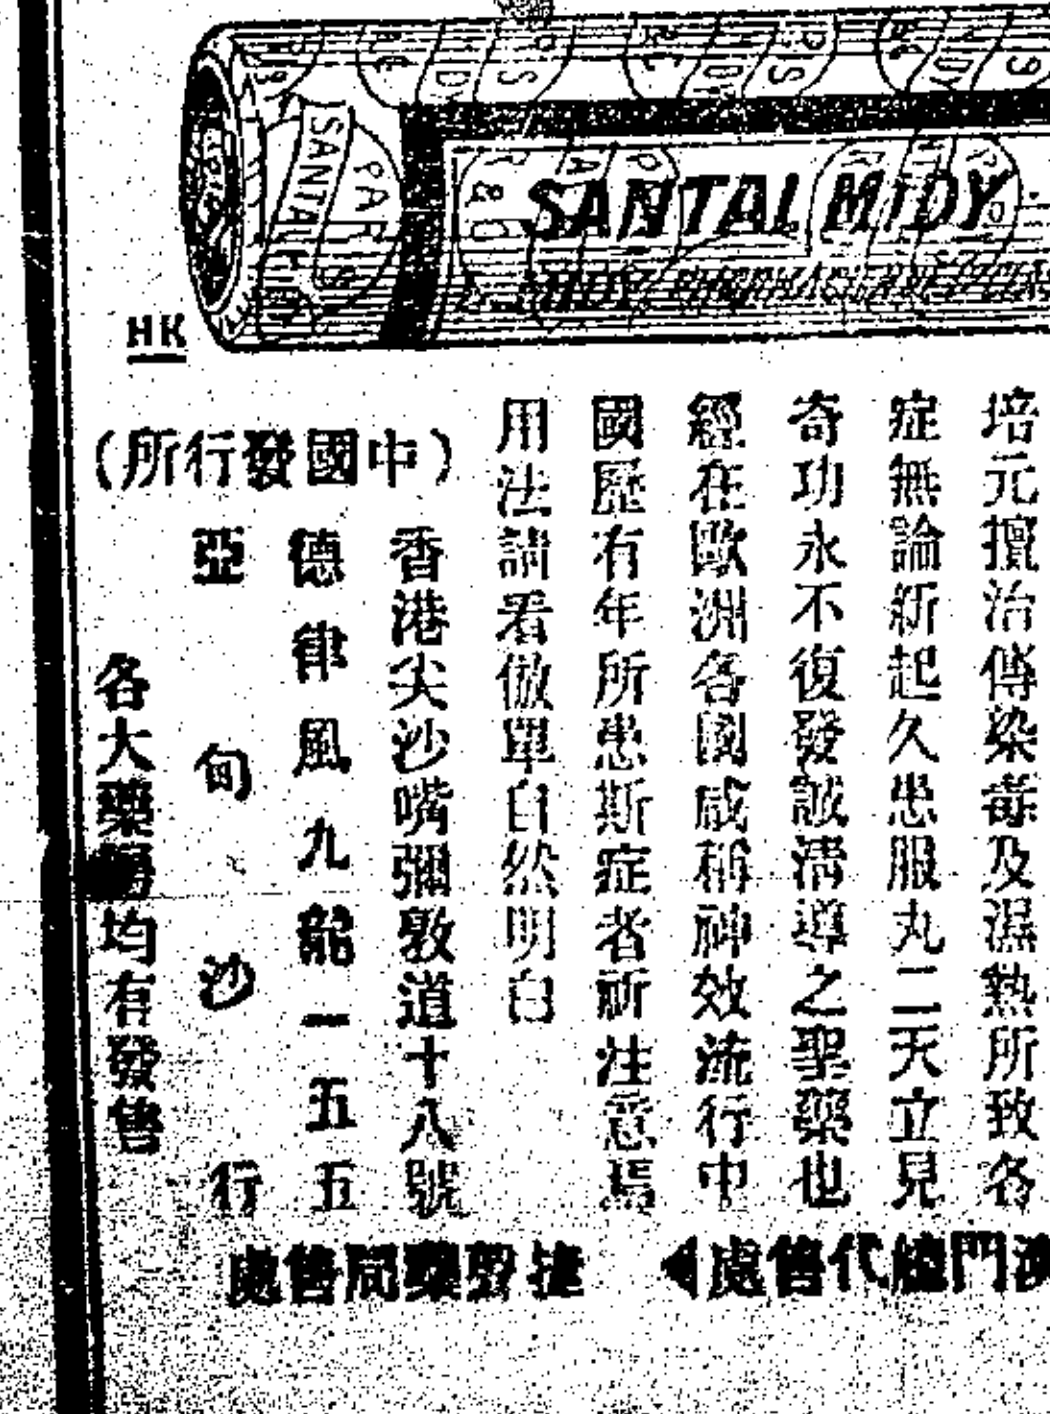 SANTAL MIDY
HK
培元擅治傳染毒及濕熱所致各
症無論新起久患服丸二天立見
奇功永不復發誠清導之聖藥也
經在歐洲各國咸稱神效流行中
國歷有年所患斯症者祈注意焉
用法請看倣單自然明白
(中國發行所)
香港尖沙嘴彌敦道十八號
德律風九龍一五五五
亞旬沙行
各大藥房均有發售
澳門總代售處
捷聖藥局售處